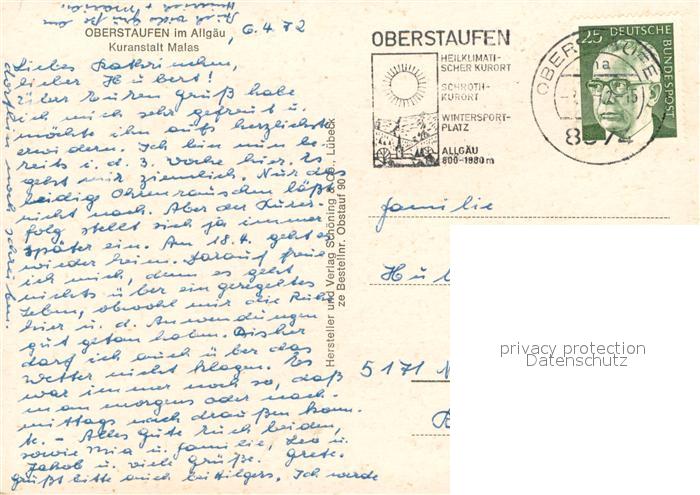 OBERSTAUFEN im Allgäu
Kuranstalt Malas
6.4.72
Liebes Kathrinchen,
lieber Hubert!
Über Euren Gruß habe
ich mich sehr gefreut u.
möchte ihn aufs herzlichste
erwidern. Ich bin nun be-
reits i. d. 3. Woche hier. Es
geht mir ziemlich. Nur das
leidige Ohrenrauschen läßt
nicht nach. Aber der Kurer-
folg stellt sich ja immer
später ein. Am 18.4. geht es
wieder heim. Darauf freue
ich mich, denn es geht
nichts über ein geregeltes
Leben, obwohl mir die Ruhe
hier u. d. Anwendungen
gut getan haben. Bisher
darf ich auch über das
Wetter nicht klagen. Es
war immer noch so, daß
man morgens oder nach-
mittags nach draußen konn-
te. - Alles Gute Euch beiden,
sowie Mia u. Familie, Leo u.
Jakob u. viele Grüße. Grete.
Grüßt bitte auch Hilgers. Ich werde
dorthin noch schreiben.
Hersteller und Verlag Schöning & Co., Lübeck
ze Bestellnr. Obstauf 90
OBERSTAUFEN
HEILKLIMATI-
SCHER KURORT
SCHROTH-
KURORT
WINTERSPORT-
PLATZ
ALLGÄU
800-1880 m
8974
25
DEUTSCHE
BUNDESPOST
Familie
Hub
5171
privacy protection
Datenschutz